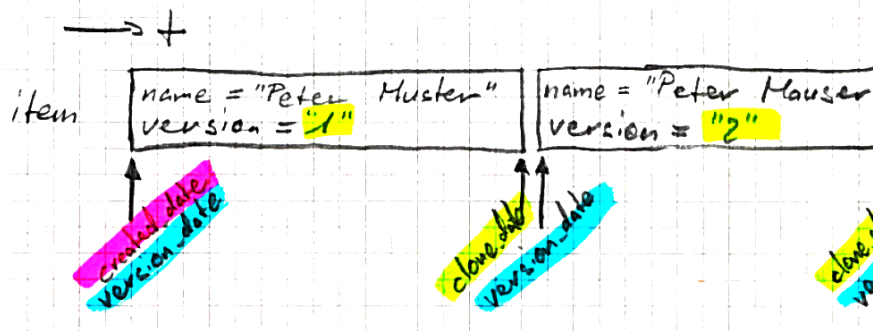 t
item
name = "Peter Muster"
version = "1"
name = "Peter Mauser
version = "2"
created_date
version_date
clone_date
version_date
clone_d
ve